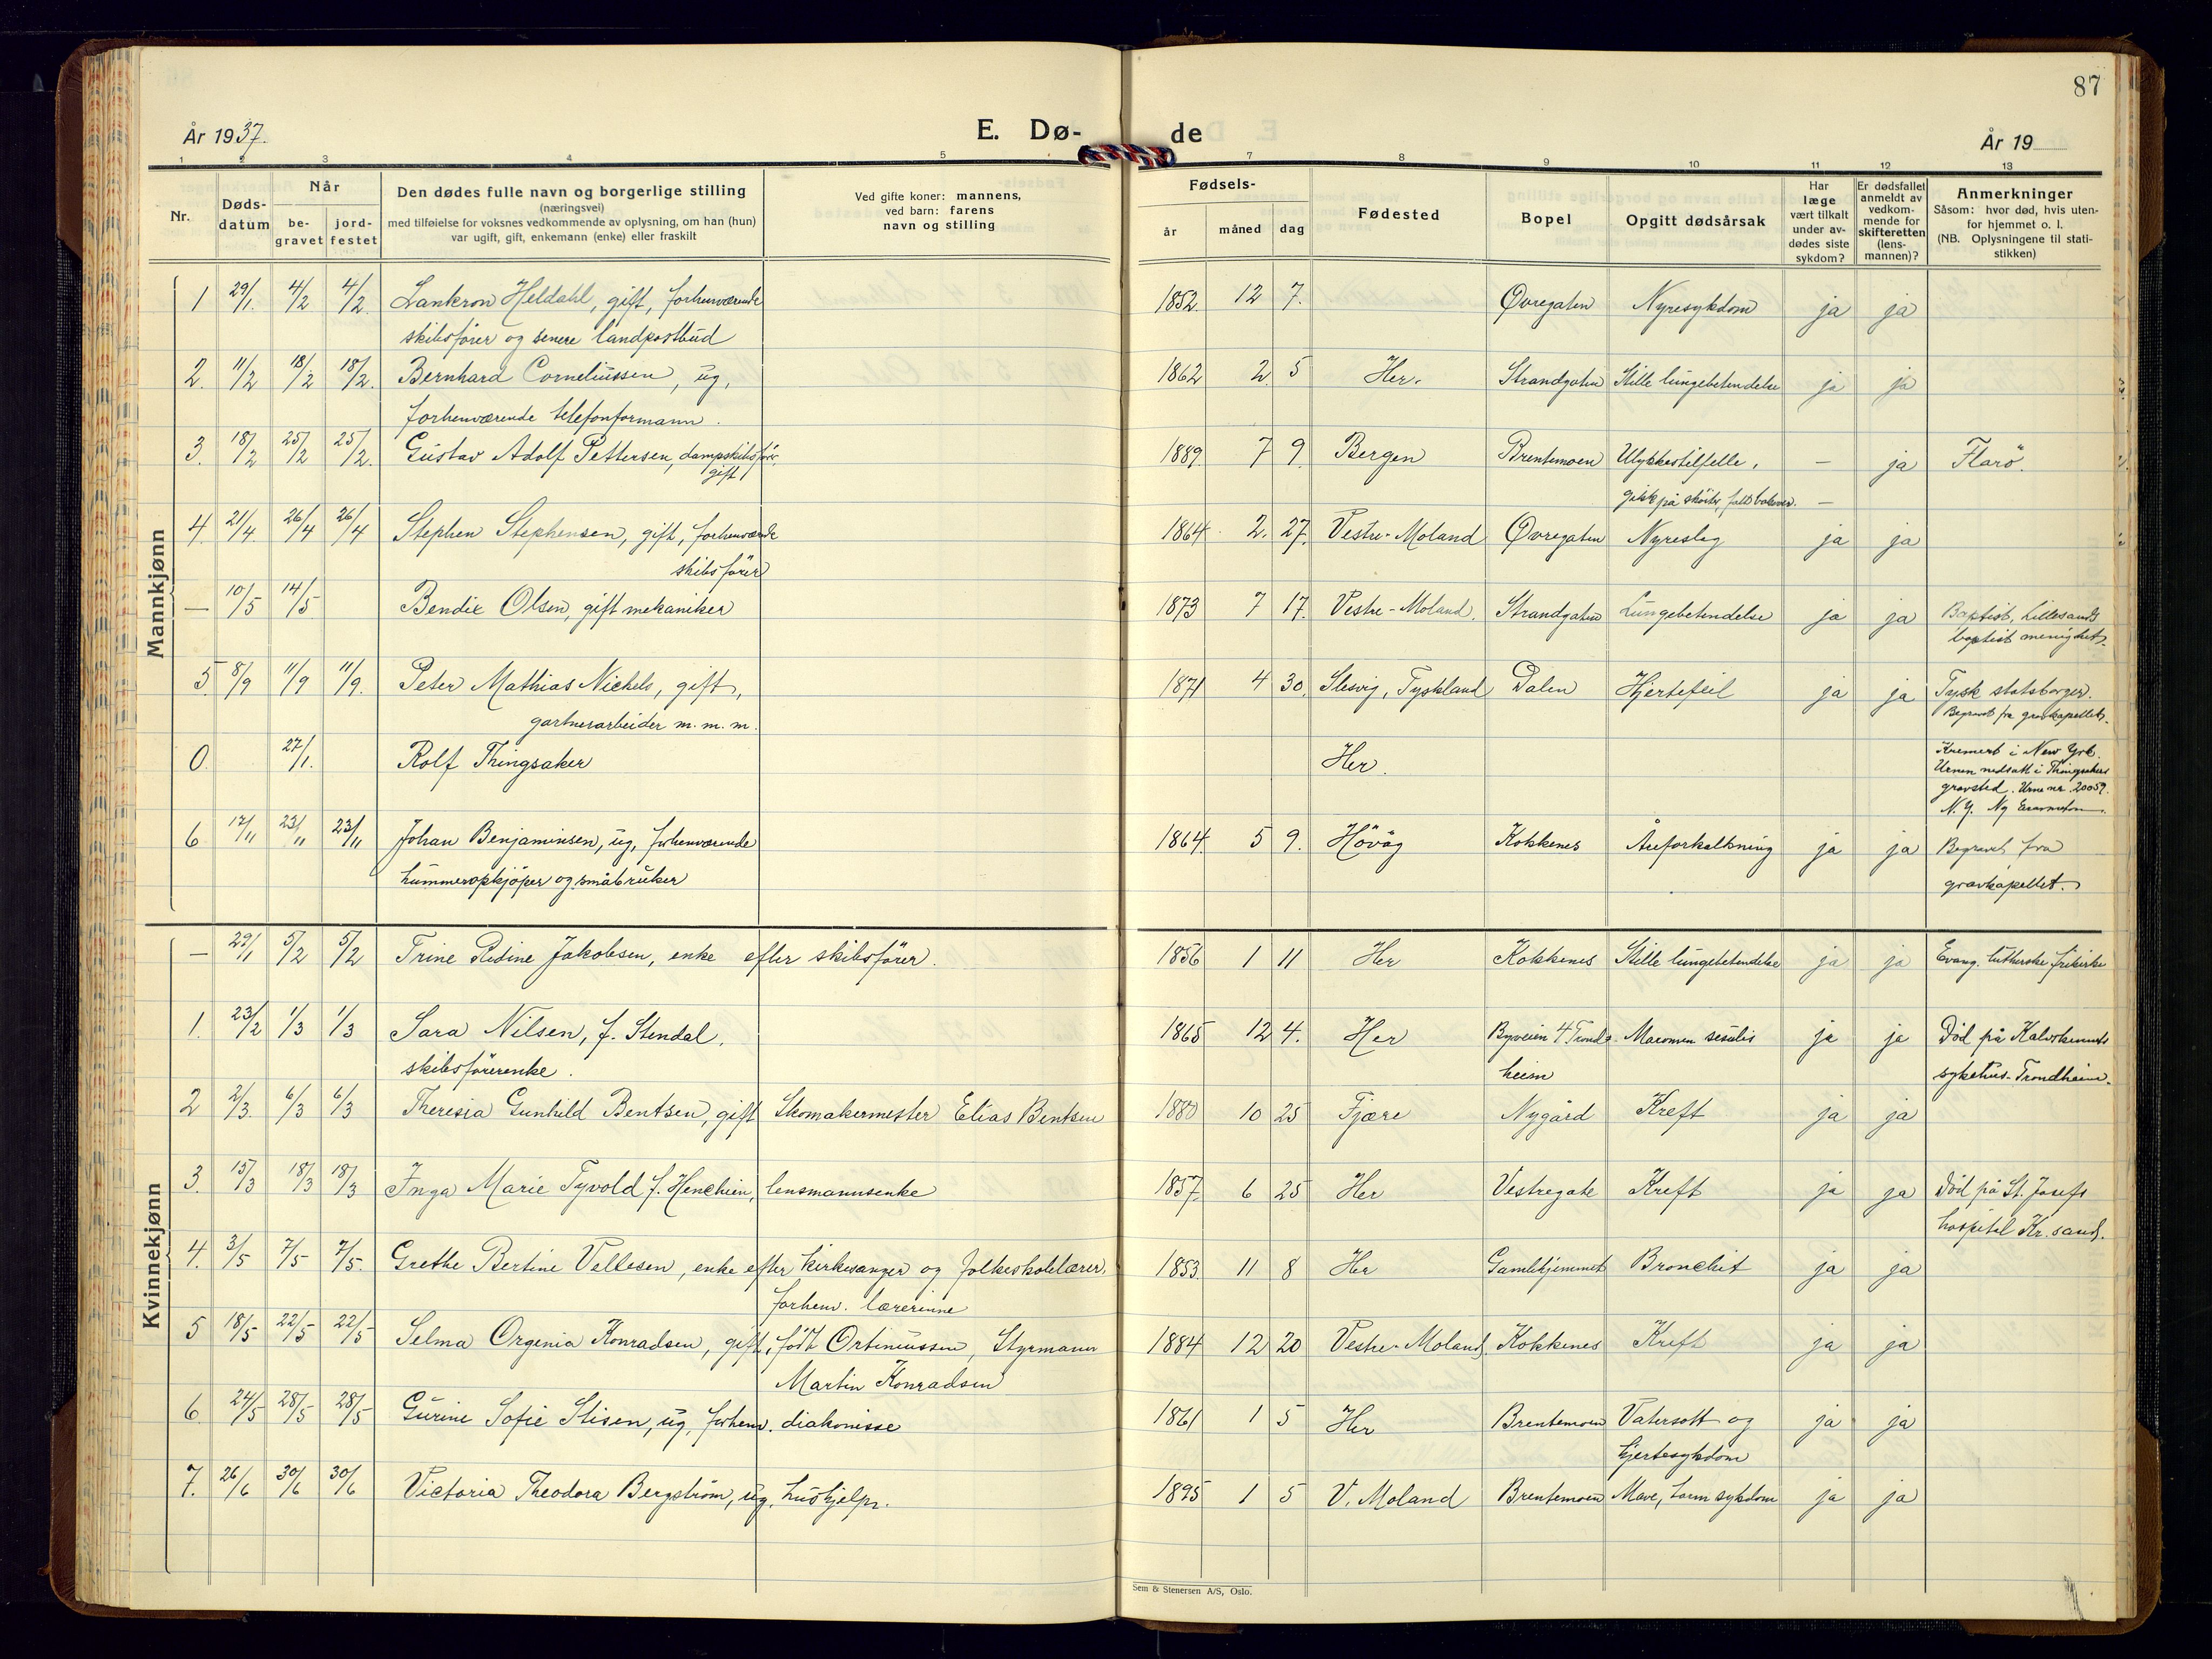 87
År 1937.
E. Dø-
de
År 19
1 2 3 4 5
7 8 9 10 11 12 13
Nr.
Døds-
datum
Når
be-
gravet
jord-
festet
Den dødes fulle navn og borgerlige stilling
(næringsvei)
med tilføielse for voksnes vedkommende av oplysning, om han (hun)
var ugift, gift, enkemann (enke) eller fraskilt
Ved gifte koner: mannens,
ved barn: farens
navn og stilling
Fødsels-
år
måned
dag
Fødested
Bopel
Opgitt dødsårsak
Har
læge
vært tilkalt
under av-
dødes siste
sykdom?
Er dødsfallet
anmeldt av
vedkom-
mende for
skifteretten
(lens-
mannen)?
Anmerkninger
Såsom: hvor død, hvis uten-
for hjemmet o. l.
(NB. Oplysningene til stati-
stikken)
Mannkjønn
1 29/1. 4/2 4/2. Lankron Heldahl, gift, forhenværende 1852. 12 7. Øvregaten Nyresykdom ja ja
skibsfører og senere landpostbud
2. 11/2 18/2 18/2. Bernhard Corneliussen, ug, 1862 2. 5 Her. Strandgaten Stille lungebetendelse ja ja
forhenværende telefonformann.
3. 18/2 25/2 25/2. Gustav Adolf Pettersen, dampskibsfør. 1889. 7 9. Bergen Brentemoen Ulykkestilfelle. — ja Flarö.
gift
gikk på skøiter, falt bakover. —
4. 21/4. 26/4 26/4 Stephen Stephensen, gift, forhenværende 1864. 2. 27. Vestre-Moland Øvregaten Nyreslag ja ja
skibsfører
— 10/5 14/5 Bendix Olsen, gift mekaniker 1873 7 17. Vestre-Moland. Strandgaten Lungebetendelse ja ja Baptist, Lillesands
baptist menighet.
5. 8/9 11/9 11/9. Peter Mathias Nickels, gift, 1871 4 30. Slesvig, Tyskland Dalen Hjertefeil ja ja Tysk statsborger.
gartnerarbeider m. m. m. Begravet fra gravkapellet.
0. 27/1. Rolf Thingsaker Her. Kremert i New York.
Urnen nedsatt i Thingsakers
gravsted. Urne nr. 20059.
N. Y. Ny
6 17/11 23/11 23/11 Johan Benjaminsen, ug, forhenværende 1864. 5 9. Hövåg Kokkenes Åreforkalkning ja ja Begravet fra
hummeropkjøper og småbruker gravkapellet.
Kvinnekjønn
— 29/1 5/2 5/2 Trine Jakobsen, enke efter skibsfører. 1856 1 11 Her Kokkenes Stille lungebetendelse ja ja Evang. lutherske frikirke
1. 23/2 1/3 1/3 Sara Nilsen, f. Stendal. 1865 12 4. Her Byveien 4 Trond- ja ja Död på Kalvskinnets
skibsførerenke. heim sykehus. Trondheim.
2 2/3. 6/3 6/3 Theresia Gunhild Bentsen, gift Skomakermester Elias Bentsen 1880 10 25 Fjære Nygård Kreft ja ja
3. 15/3 18/3 18/3 Inga Marie Tyvold f. Henchien, lensmannsenke 1857. 6 25 Her Vestregate Kreft ja ja Död på St. Josefs
hospital Kr. sand.
4. 3/5 7/5 7/5. Grethe Bertine Vellesen, enke efter kirkesanger og folkeskolelærer. 1853. 11 8 Her Gamlehjemmet Bronchit ja ja
forhenv. lærerinne
5 18/5 22/5 22/5 Selma Orgenia Konradsen, gift, født Ortinussen, Styrmann 1884 12 20 Vestre-Moland. Kokkenes Kreft ja ja
Martin Konradsen
6. 24/5 28/5 28/5 Gurine Sofie Stisen, ug, forhenv. diakonisse 1861 1 5 Her Brentemoen Vatersott og ja ja
hjertesykdom
7. 26/6 30/6 30/6 Victoria Theodora Bergström, ug. hushjelp. 1895 1 5 V. Moland Brentemoen Mave, tarm sykdom ja ja
Sem & Stenersen A/S, Oslo.